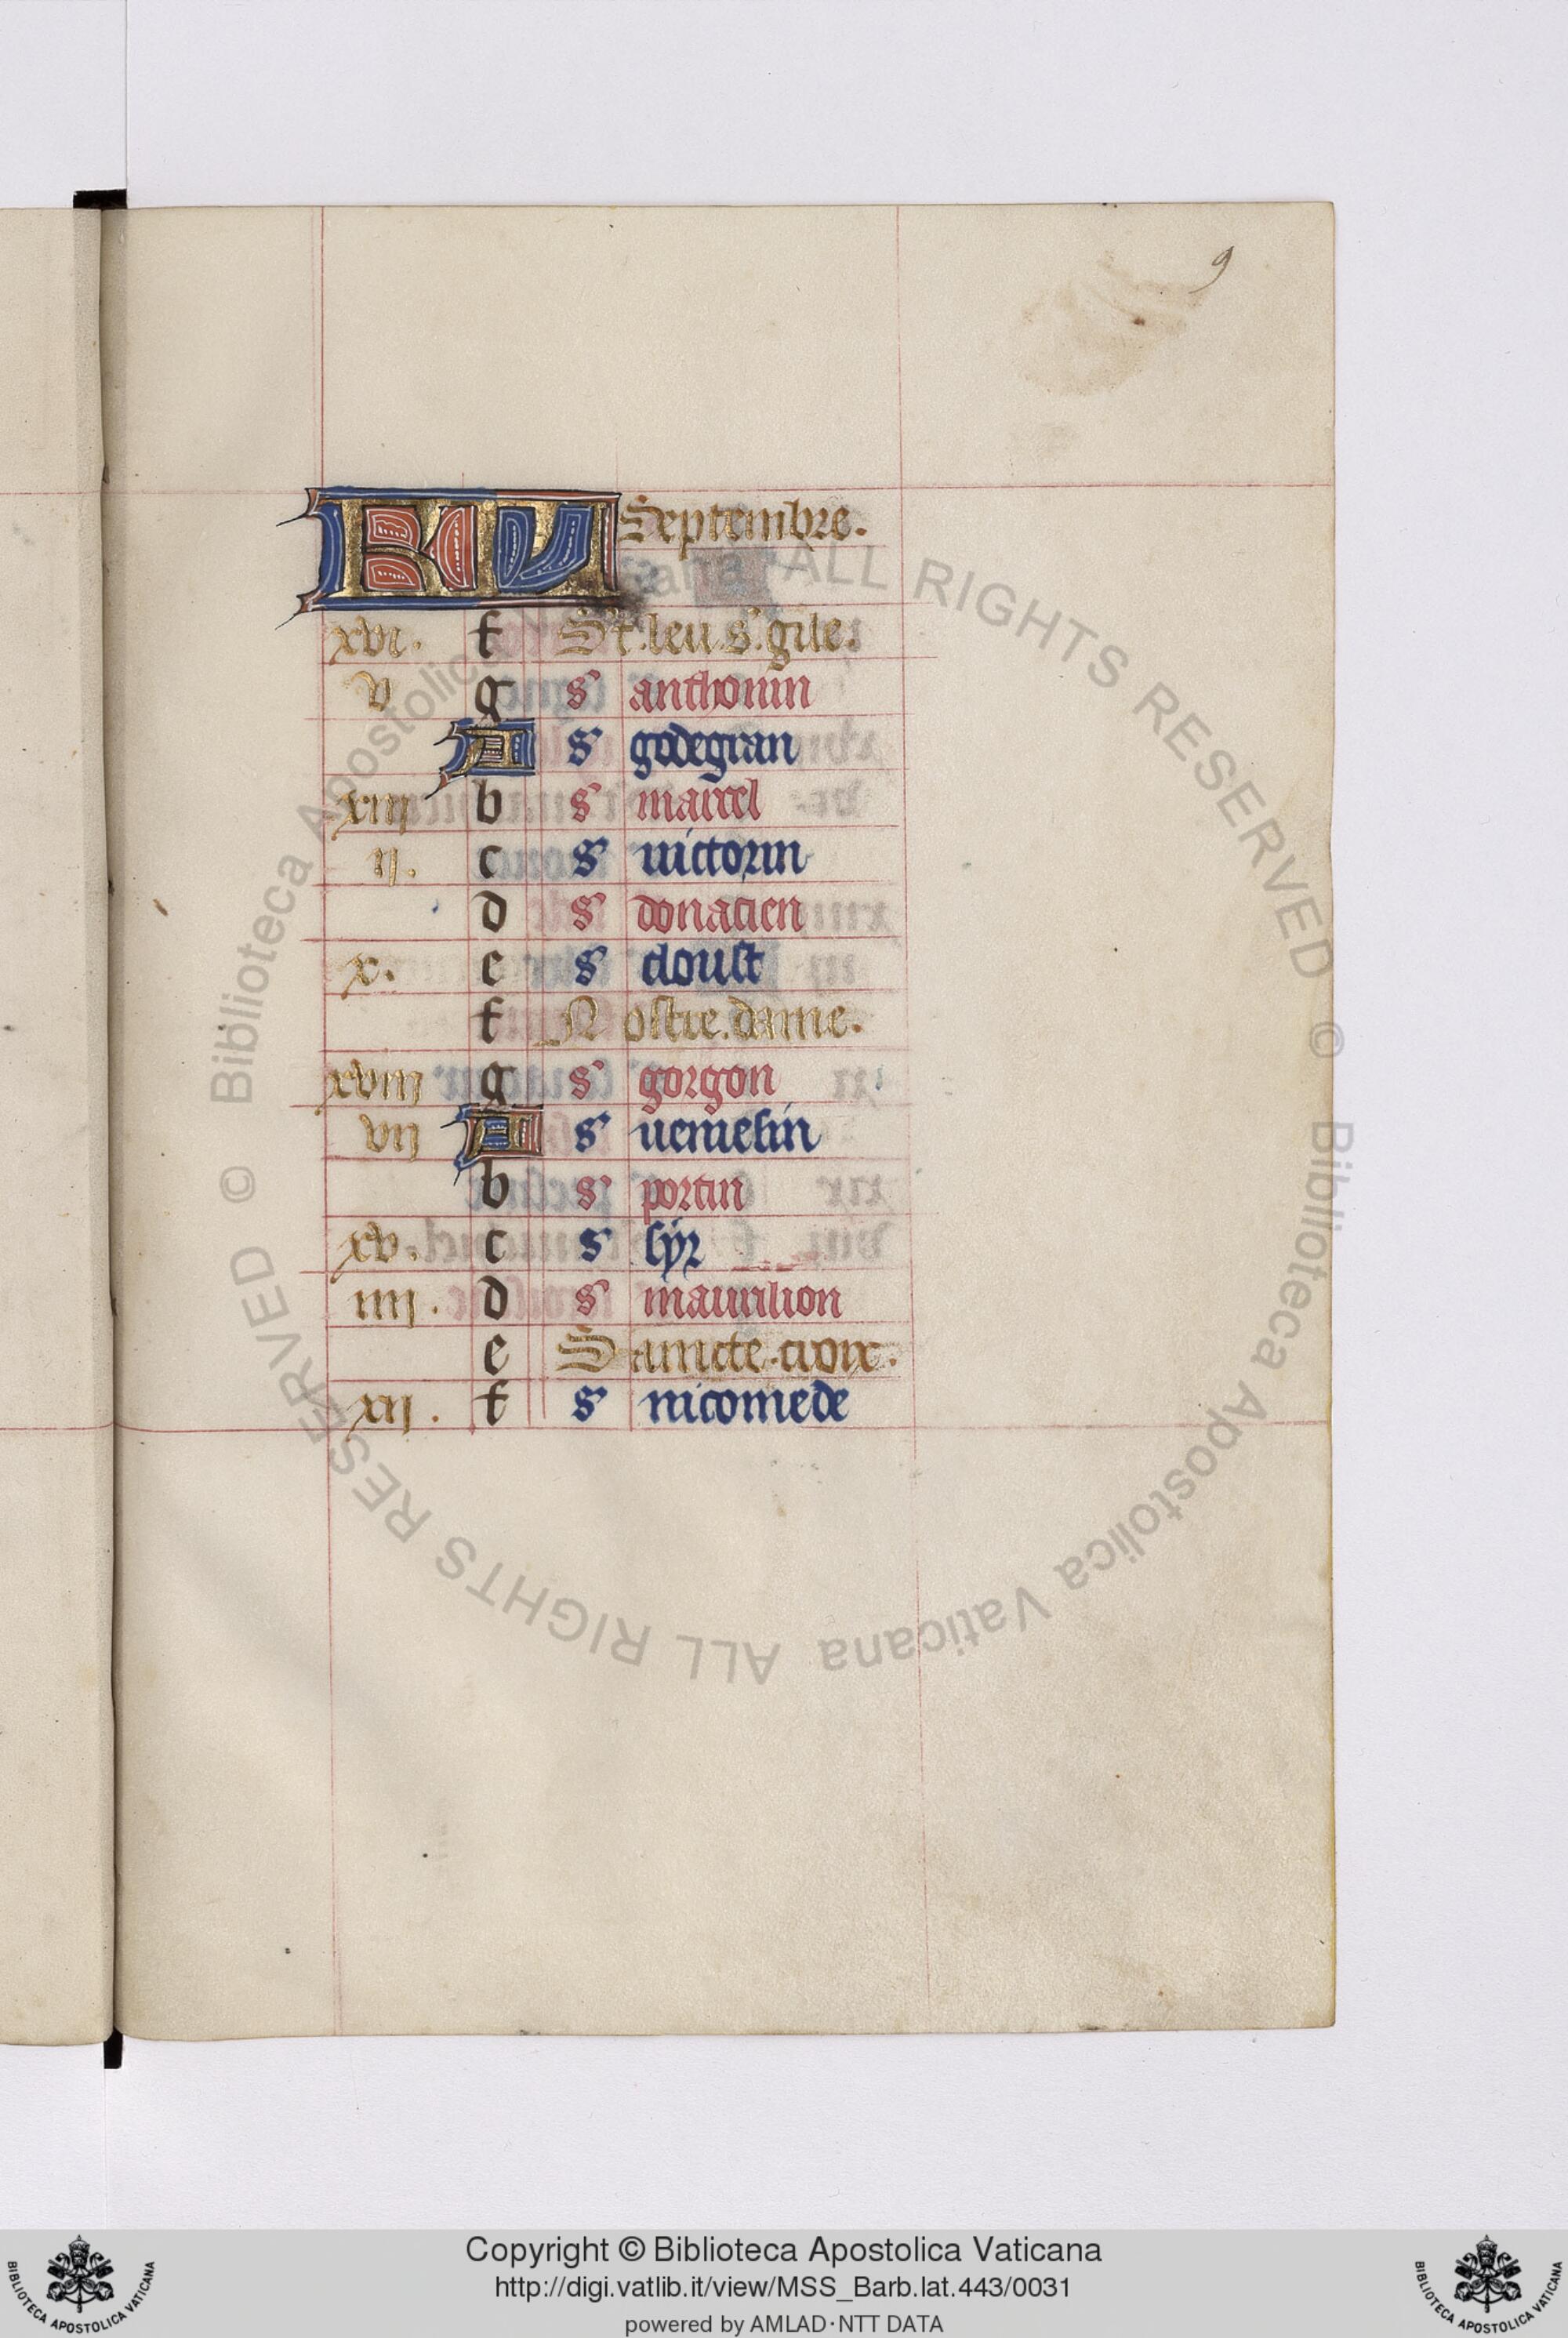 9
KL Septembre.
xvi. f St. leu. s. gile.
v g s' anthonin
A s' godegran
xiii b s' marcel
ii. c s' victorin
d s' donacien
x. e s' cloust
f Nostre. dame.
xviii g s' gorgon
vii A s' venielin
b s' portin
xv. c s' syr
iiii. d s' maurilion
e Saincte. croix.
xii. f s' nicomede
© Biblioteca Apostolica Vaticana ALL RIGHTS RESERVED © Biblioteca Apostolica Vaticana ALL RIGHTS RESERVED
Copyright © Biblioteca Apostolica Vaticana
http://digi.vatlib.it/view/MSS_Barb.lat.443/0031
powered by AMLAD·NTT DATA
BIBLIOTECA APOSTOLICA VATICANA
BIBLIOTECA APOSTOLICA VATICANA